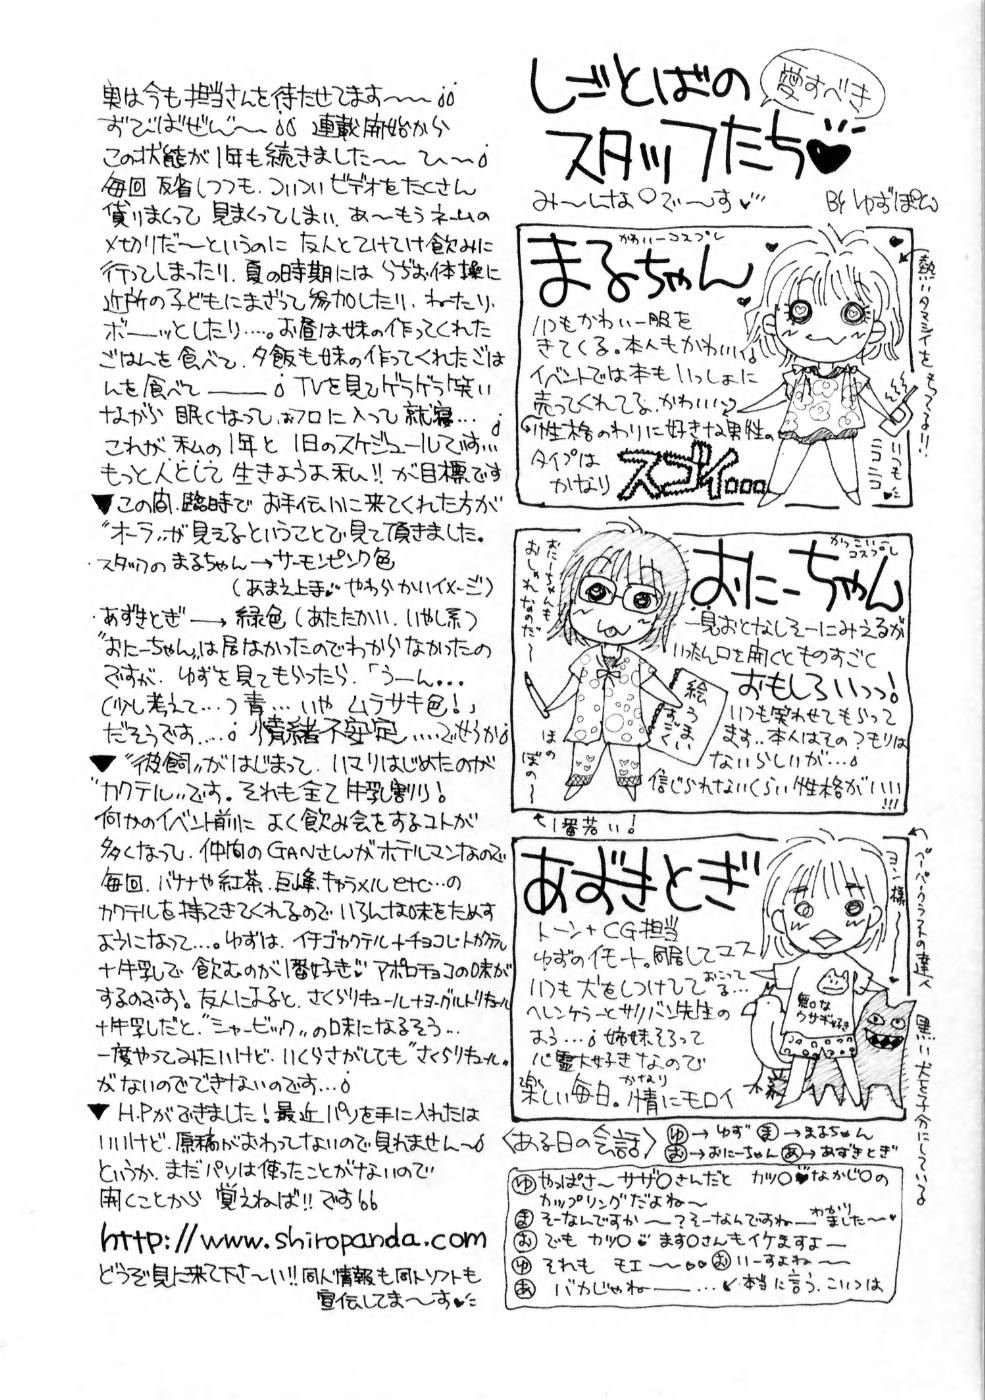 しごとばの
愛すべき
スタッフたち♥
み〜んな○で〜す♥
By ゆずぽん
実は今も担当さんを待たせてます〜〜
連載開始から
この状態が1年も続きました〜 ひ〜
毎回反省しつつも、ついついビデオをたくさん
貸りまくって見まくってしまい、あ〜もうネームの
〆切りだ〜というのに 友人とてけてけ飲みに
行ってしまったり、夏の時期には らぢお体操に
近所の子どもにまざって参加したり、ねたり、
ボー―ッとしたり…。お昼は妹の作ってくれた
ごはんを食べて、夕飯も妹の作ってくれたごは
んを食べて―― TVを見てゲラゲラ笑い
ながら 眠くなって、おフロに入って就寝…。
これが 私の1年と1日のスケジュールです…
もっと人として生きようよ私!! が目標です
▼この間、臨時で お手伝いに来てくれた方が
"オーラ"が見えるということで見て頂きました。
・スタッフの まるちゃん→サーモンピンク色
(あまえ上手♥やわらかいイメージ)
あずきとぎ → 緑色(あたたかい、いやし系)
"おにーちゃん"は居なかったのでわからなかったの
ですが、ゆずを見てもらったら、「うーん...
(少し考えて…)青…いや ムラサキ色!」
だそうです…。情緒不安定……でせうか
▼"彼飼"がはじまって、ハマりはじめたのが
"カクテル"です。それも全て牛乳割り!
何かのイベント前に よく飲み会をするコトが
多くなって、仲間のGANさんがホテルマンなので
毎回、バナナや紅茶、巨峰、キャラメルetc…の
カクテルを持ってきてくれるので いろんな味をためす
ようになって…。ゆずは、イチゴカクテル+チョコレートカクテル
+牛乳で 飲むのが1番好き♥アポロチョコの味が
するのです。友人によると、さくらリキュール+ヨーグルトリキュール
+牛乳だと、"シャービック"の味になるそう…
一度やってみたいけど、いくらさがしても"さくらリキュール"
がないのでできないのです…
▼ H.Pができました!最近パソを手に入れたは
いいけど、原稿がおわってないので見れません〜
というか、まだパソは使ったことがないので
開くことから 覚えねば!!です
http://www.shiropanda.com
どうぞ見に来て下さ〜い!!同人情報も同人ソフトも
宣伝してま〜す♥
かわいーコスプレ
まるちゃん
いつもかわいー服を
きてくる。本人もかわいい
イベントでは本もいっしょに
売ってくれてる。かわいい
性格のわりに好きな男性の
タイプは
かなり
スゴイ...
熱いタマシイをもってるよ!!
いつも
ニコニコ
かっこいーコスプレ
おにーちゃん
一見おとなしそーにみえるが
いったん口を開くとものすごく
おもしろいっっ!
いつも笑わせてもらって
ます..本人はそのつもりは
ないらしいが…
信じられないくらい性格がいい!!!
おにーちゃんも
おしゃれなのだ〜
絵
うまい
うますぎ
ほの
ぼの〜
1番若い!
あずきとぎ
トーン+CG担当
ゆずのイモート。同居してマス
いつも犬をしつけしてる…
おこって
ヘレンケラーとサリバン先生の
よう…姉妹そろって
心霊大好きなので
楽しい毎日。かなり情にモロイ
ヨン様〜
ペーパークラフトの達人
黒い犬を子分にしている
ウサギ好き
〈ある日の会話〉
ゆ→ゆず ま→まるちゃん
お→おにーちゃん あ→あずきとぎ
ゆ やっぱさ〜サザ○さんだと カツ○♥なかじ○の
カップリングだよね〜
ま そーなんですか――?そーなんですね―わかりました―♥
お でも カツ○♥ます○さんもイケますよ―
ゆ それも モエ――♥♥ お いーすよね―
あ バカじゃね――…↙本当に言う、こいつは